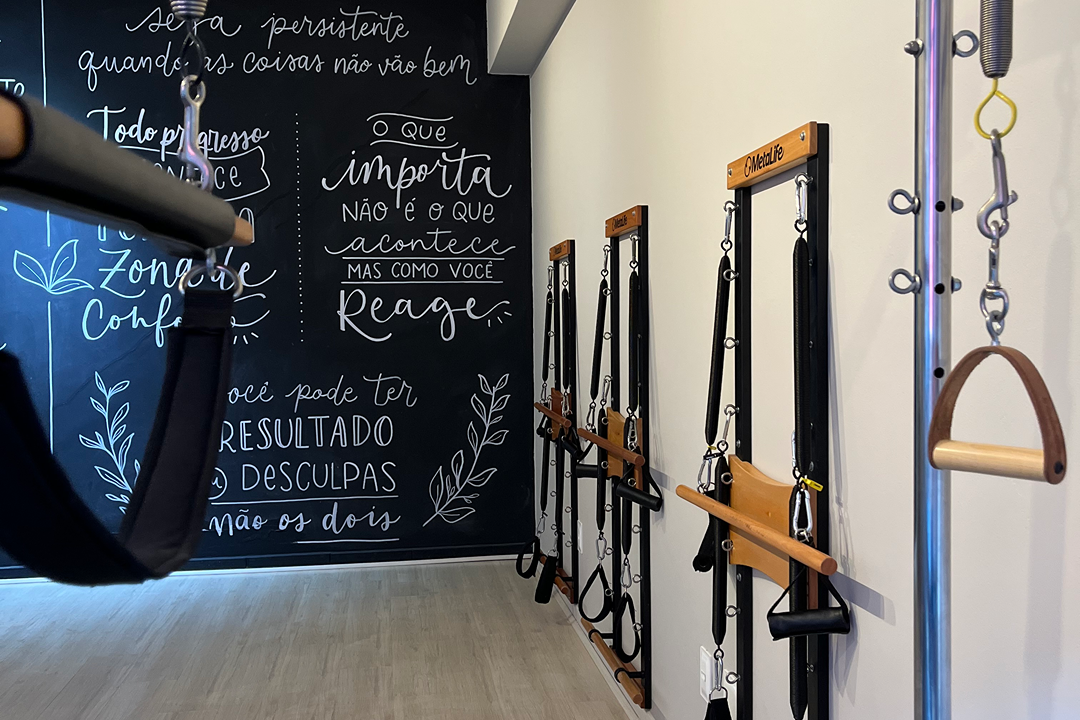 seja persistente
quando as coisas não vão bem
Todo progresso
Zona de
O QUE
importa
NÃO É O QUE
acontece
MAS COMO VOCÊ
Reage
você pode ter
RESULTADO
DESCULPAS
não os dois
MetaLife
MetaLife
MetaLife